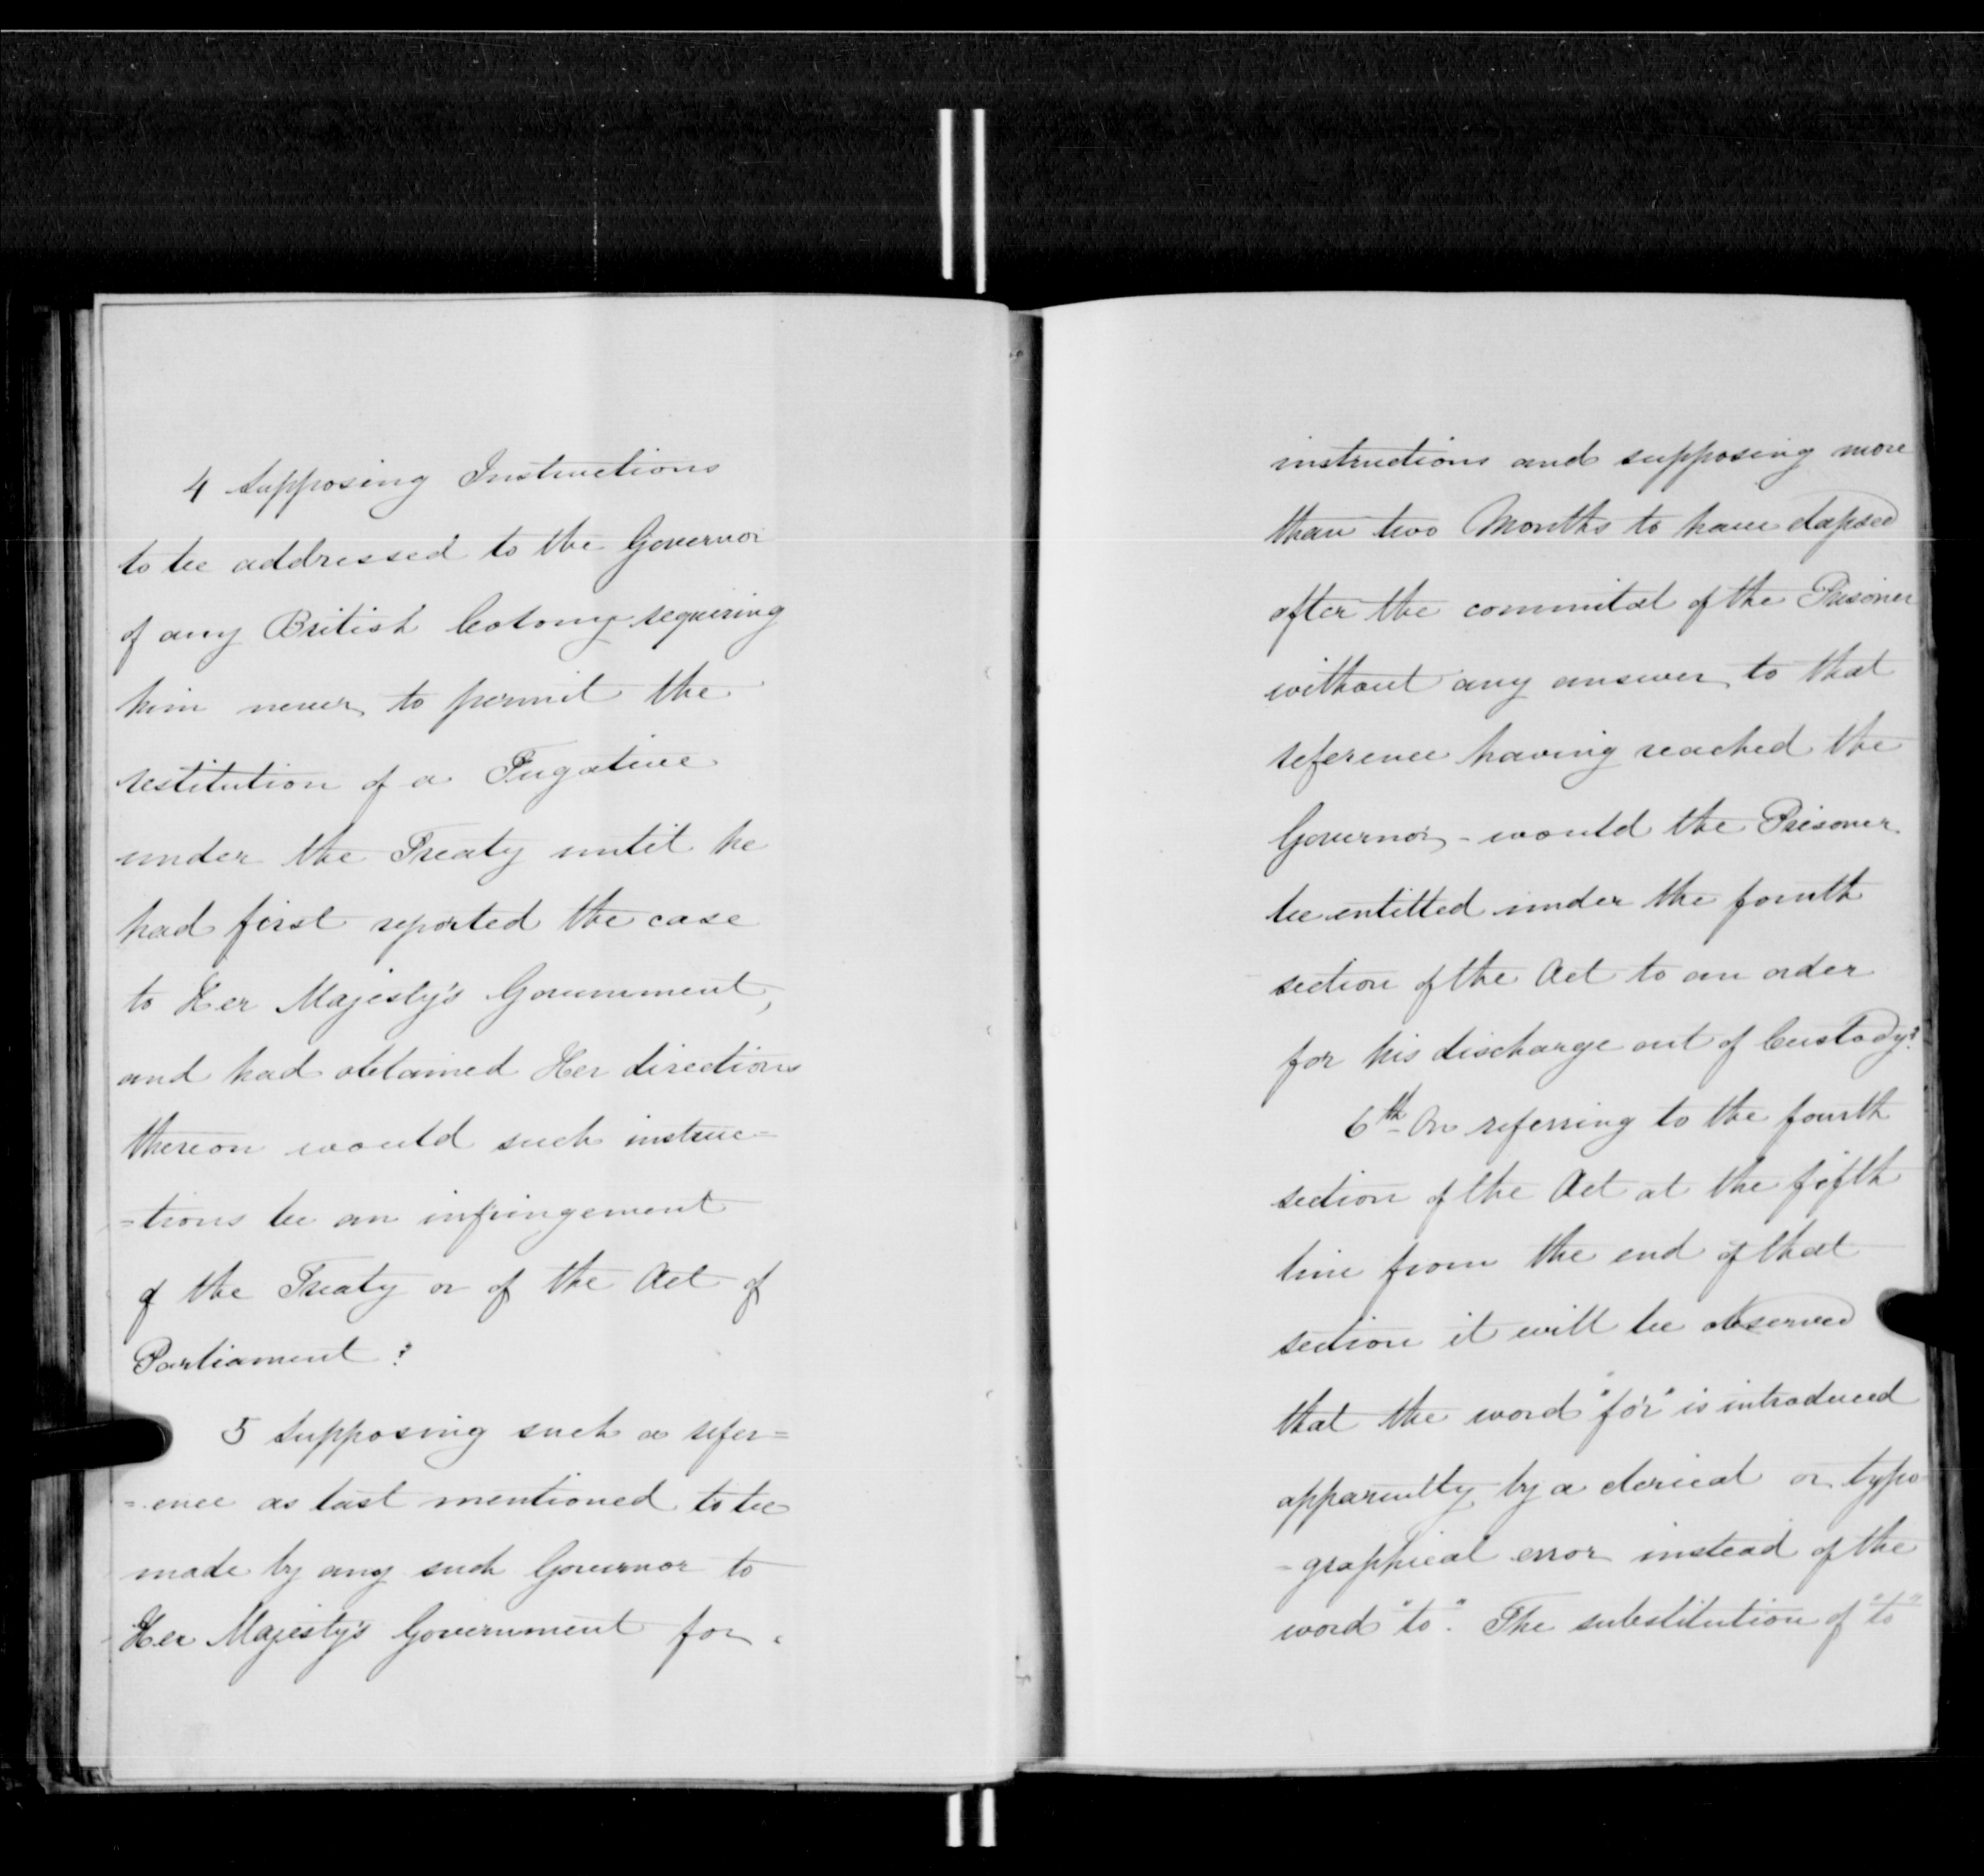 4 Supposing Instructions
to be addressed to the Governor
of any British Colony requiring
him never to permit the
restitution of a Fugative
under the Treaty until he
had first reported the case
to Her Majesty's Government,
and had obtained Her directions
thereon would such instruc=
=tions be an infringement
of the Treaty or of the Act of
Parliament?
5 Supposing such a refer=
=ence as last mentioned to be
made by any such Governor to
Her Majesty's Government for
instructions and supposing more
than two Months to have elapsed
after the committal of the Prisoner
without any answer to that
reference having reached the
Governor - would the Prisoner
be entitled under the fourth
section of the Act to an order
for his discharge out of Custody?
6th On referring to the fourth
section of the Act at the fifth
line from the end of that
section it will be observed
that the word "for" is introduced
apparently by a clerical or typo
=graphical error instead of the
word "to". The substitution of "to"